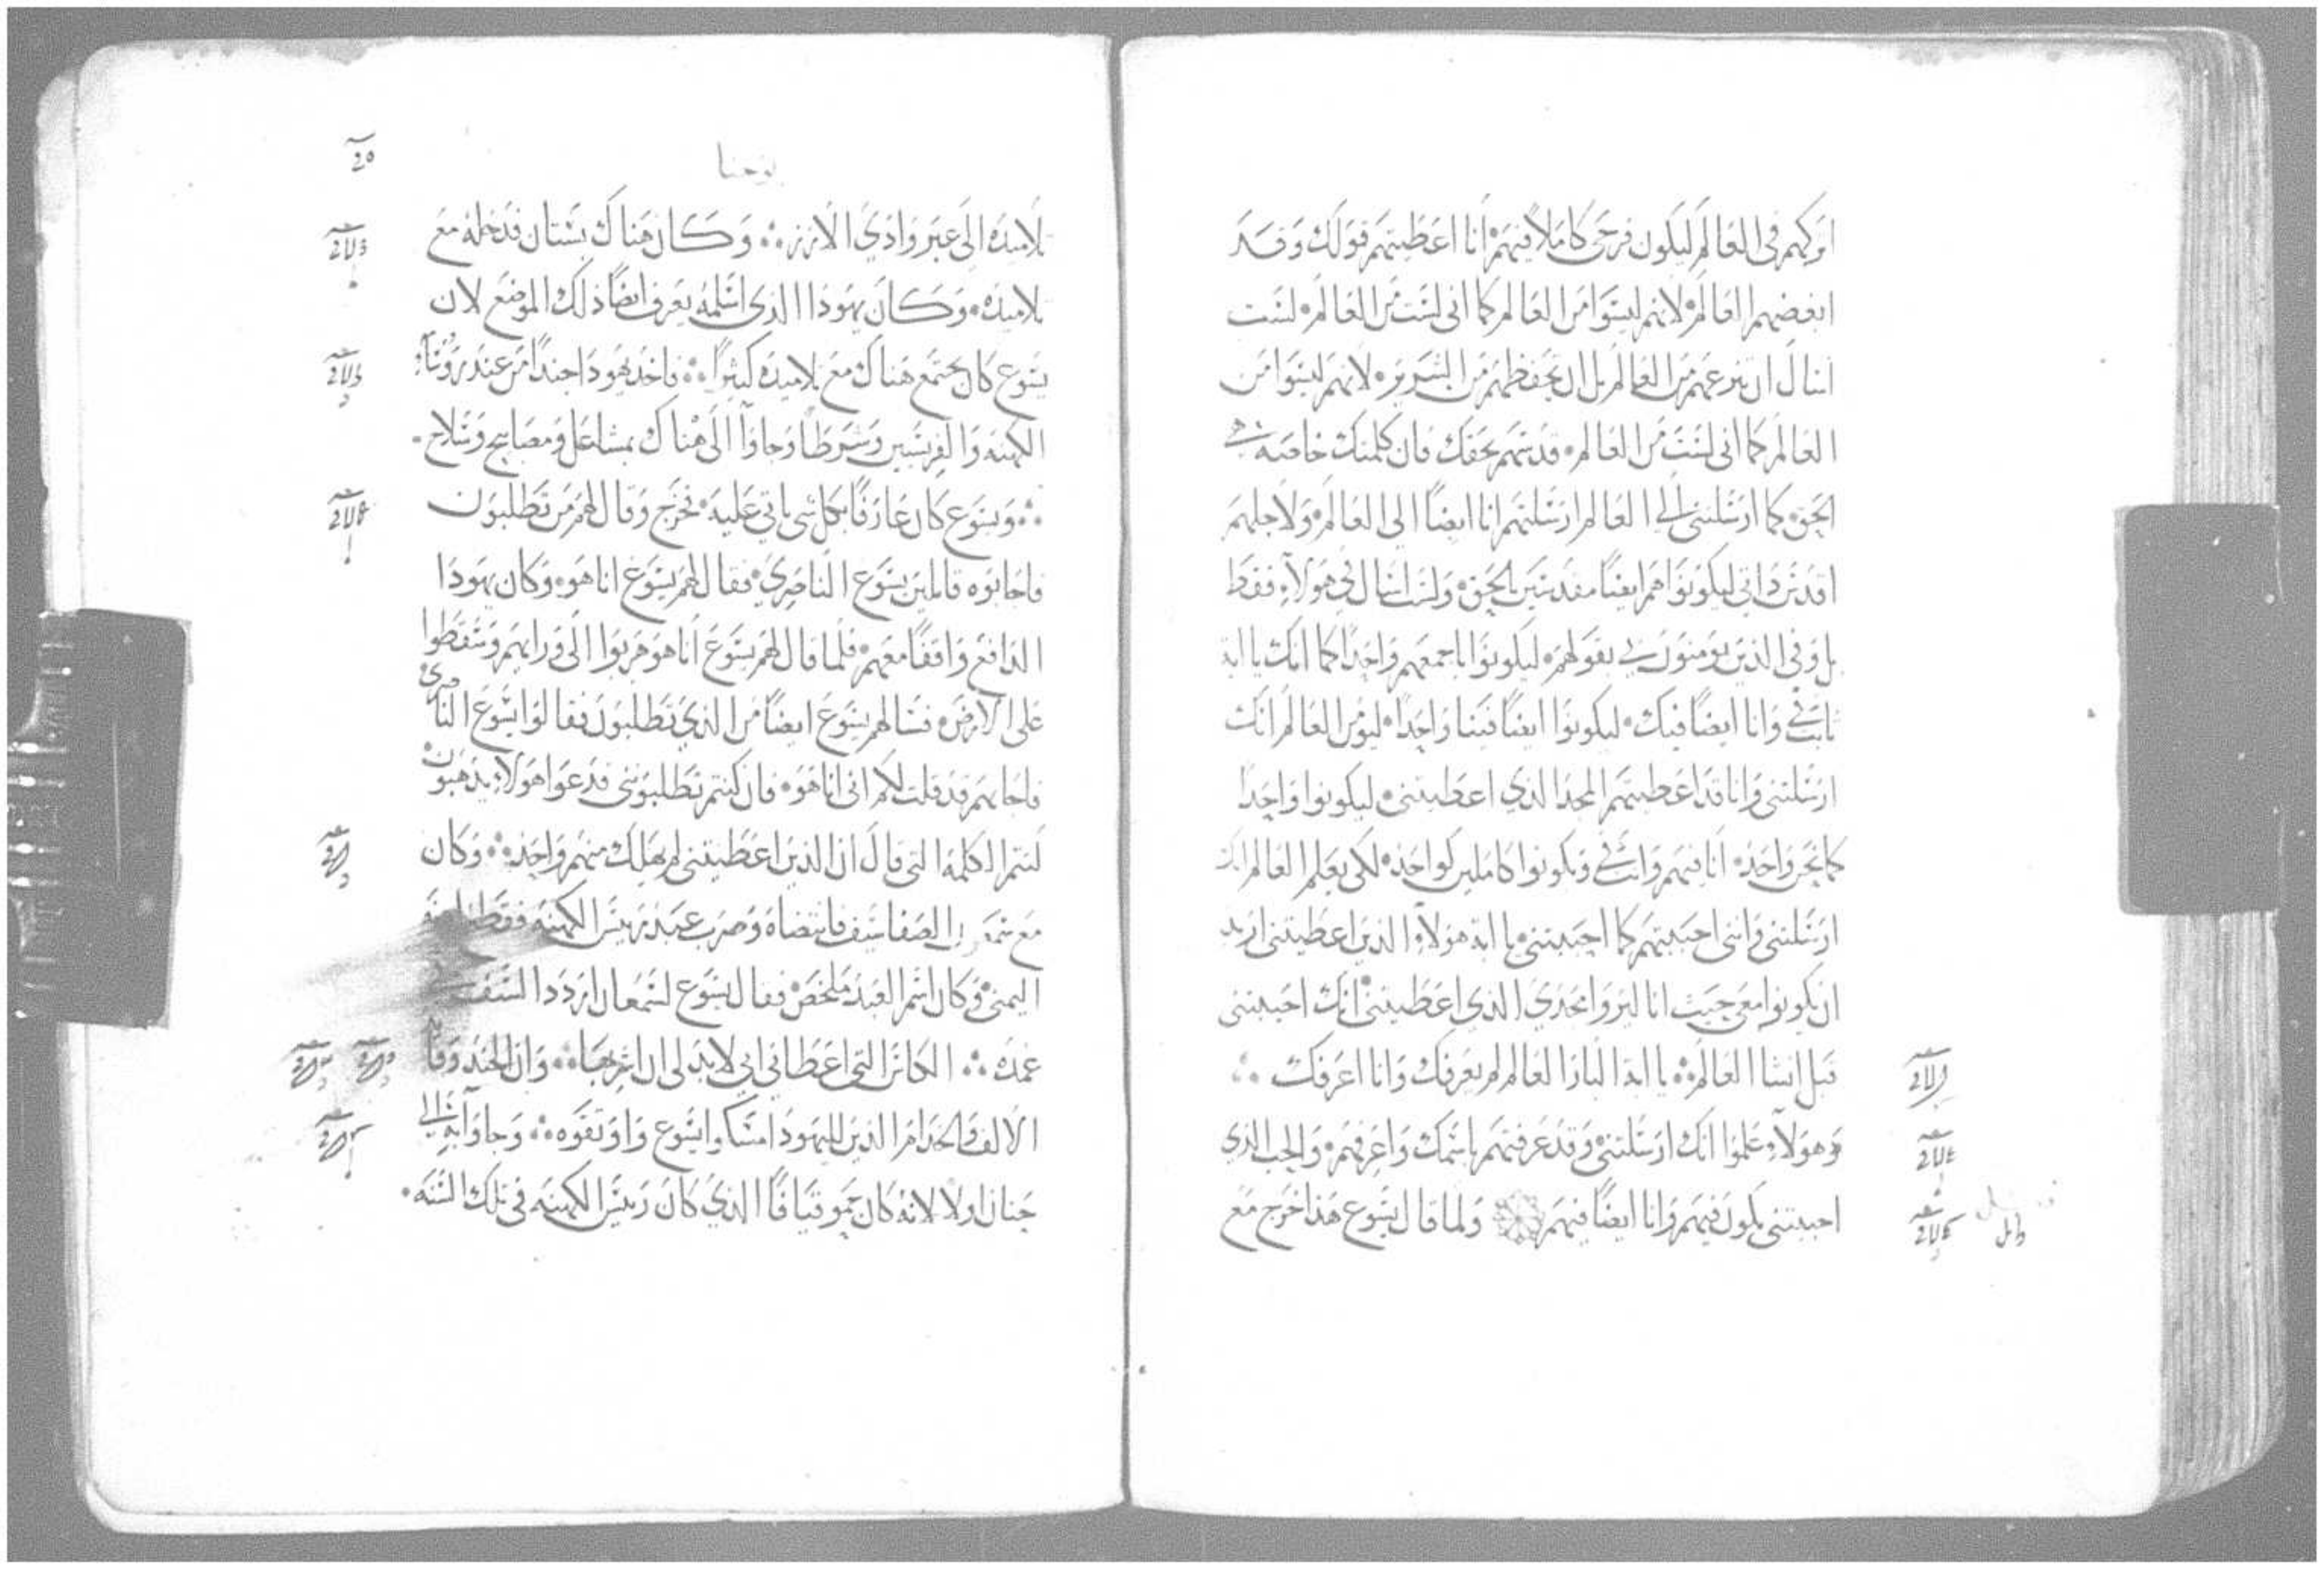 اوكهم في العالم ليكون فرحي كاملا فيهم انا اعطيتهم قولك وقد
ابغضهم العالم لانهم ليسوا من العالم كما اني لست من العالم لست
اسال ان تنزعهم من العالم بل ان تحفظهم من الشرير لانهم ليسوا من
العالم كما اني لست من العالم قدسهم بحقك فان كلمتك خاصه هي
الحق كما ارسلتني الى العالم ارسلتهم انا ايضا الى العالم ولاجلهم
اقدس ذاتي ليكونوا هم ايضا مقدسين بالحق ولست اسال في هولاء فقط
بل وفي الذين يومنون بي بقولهم ليكونوا باجمعهم واحدا كما انك يا ابة
ثابت في وانا ايضا فيك ليكونوا ايضا فينا واحدا ليومن العالم انك
ارسلتني وانا قد اعطيتهم المجد الذي اعطيتني ليكونوا واحدا
كما نحن واحد انا فيهم وانت في ويكونوا كاملين كواحد لكي يعلم العالم انك
ارسلتني وانني احببتهم كما احببتني يا ابة هولاء الذين اعطيتني اريد
ان يكونوا معي حيث انا ليروا مجدي الذي اعطيتني انك احببتني
قبل انشا العالم يا ابة البار العالم لم يعرفك وانا اعرفك
وهولاء علموا انك ارسلتني وقد عرفتهم باسمك واعرفهم والحب الذي
احببتني يكون فيهم وانا ايضا فيهم ولما قال يسوع هذا خرج مع
يوحنا
تلاميذه الى عبر وادي الارز وكان هناك بستان فدخله مع
تلاميذه وكان يهوذا الذي اسلمه يعرف ايضا ذلك الموضع لان
يسوع كان يجتمع هناك مع تلاميذه كثيرا فاخذ يهوذا جندا من عند روساء
الكهنه والفريسيين وشرطا وجاوا الى هناك بمشاعل ومصابيح وسلاح
ويسوع كان عارفا بكل شي ياتي عليه فخرج وقال لهم من تطلبون
فاجابوه قايلين يسوع الناصري فقال لهم يسوع انا هو وكان يهوذا
الدافع واقفا معهم فلما قال لهم يسوع انا هو هربوا الى ورايهم وسقطوا
على الارض فسالهم يسوع ايضا من الذي تطلبون فقالوا يسوع الناصري
فاجابهم قد قلت لكم اني انا هو فان كنتم تطلبونني فدعوا هولاء يذهبون
لتتم الكلمه التي قال ان الذين اعطيتني لم يهلك منهم واحد وكان
مع شمعون الصفا سيف فانتضاه وضرب عبد رييس الكهنه فقطع اذنه
اليمنى وكان اسم العبد ملخص فقال يسوع لشمعان اردد السيف
غمده الكاس التي اعطاني ابي لابد لي ان اشربها وان الجند وقايد
الالف والخدام الذين لليهود امسكوا يسوع واوثقوه وجاوا به الى
حنان اولا لانه كان حمو قيافا الذي كان رييس الكهنه في تلك السنه